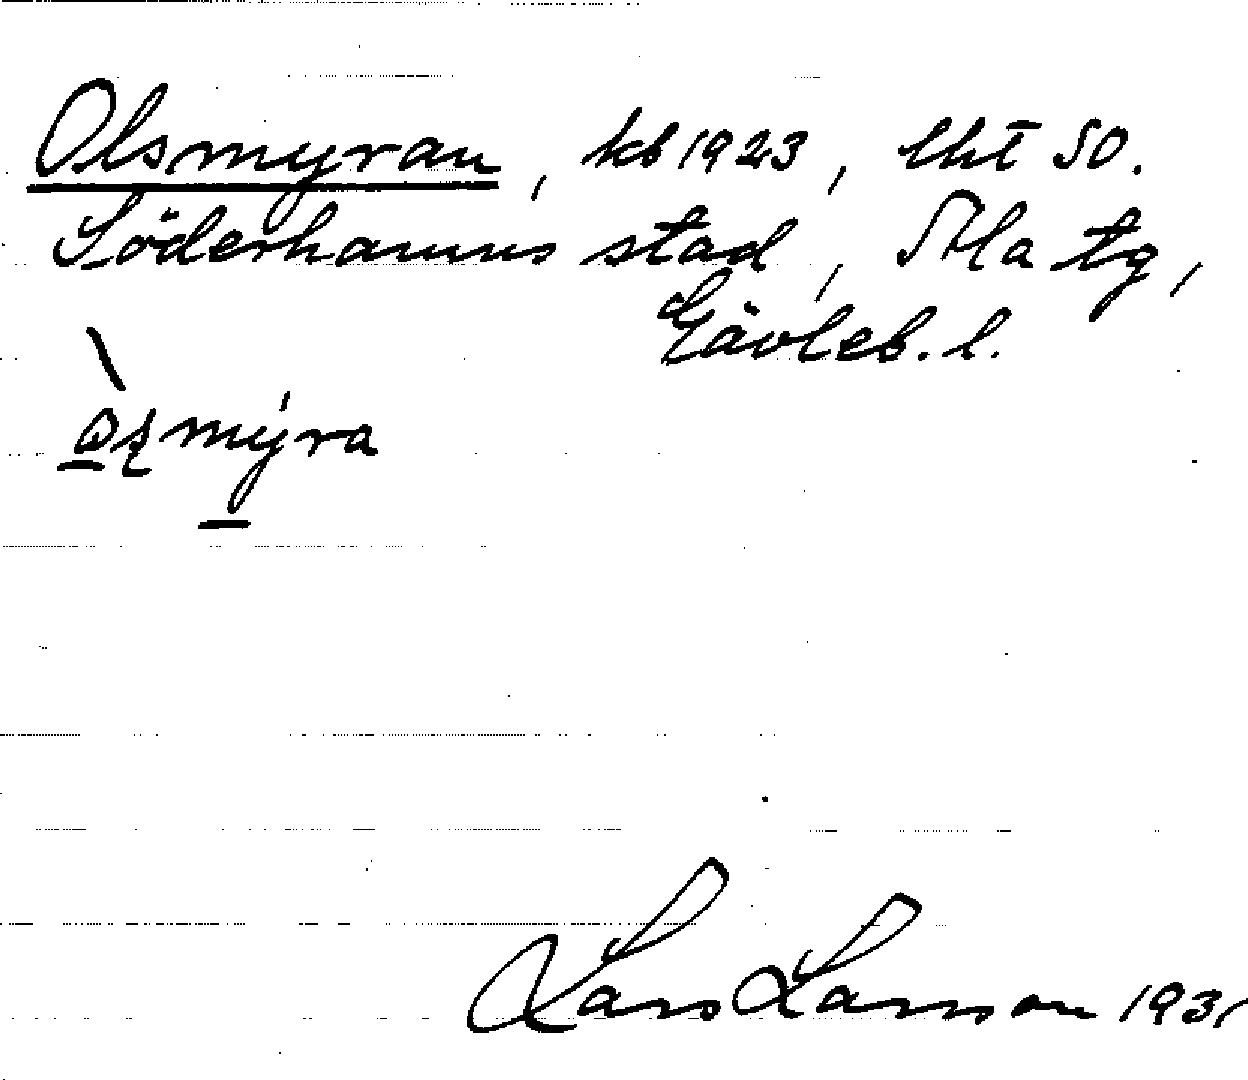 Olsmyran, kb 1923, lht SO.
Söderhamns stad, Ala tg,
Gävleb. l.
Lars Larsson 1931